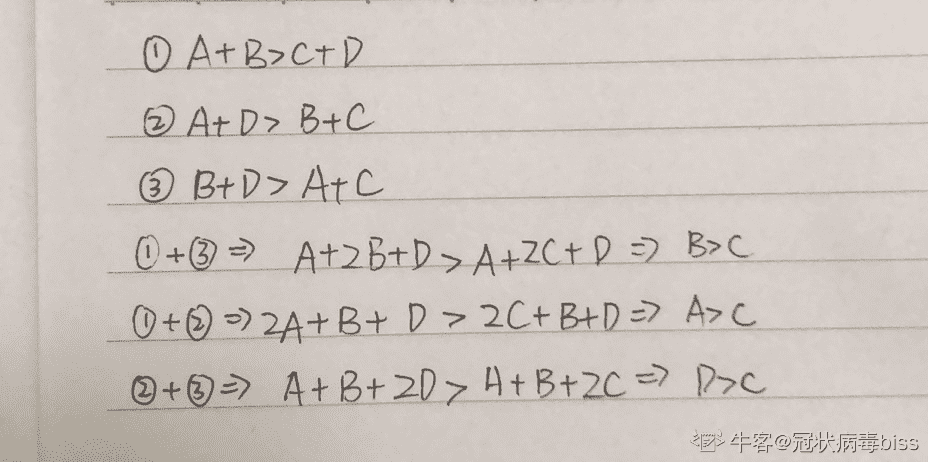 ① A+B>C+D
② A+D> B+C
③ B+D> A+C
①+③⇒ A+2B+D>A+2C+D⇒ B>C
①+②⇒2A+B+D>2C+B+D⇒ A>C
②+③⇒ A+B+2D>A+B+2C⇒ D>C
牛客@冠状病毒biss